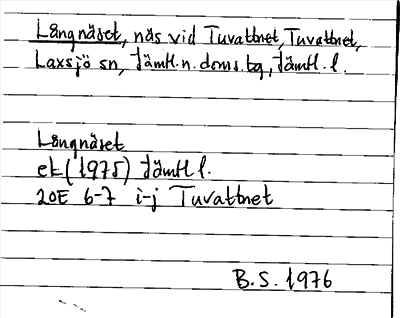 Långnäset, näs vid Tuvattnet, Tuvattnet,
Laxsjö sn, Jämtl. n. doms. tg, Jämtl. l.
Långnäset
ek (1975) Jämtl l.
20E 6-7 i-j Tuvattnet
B.S. 1976